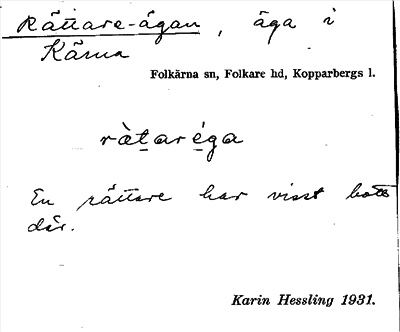 Rättare-ägan, äga i
Kärna
Folkärna sn, Folkare hd, Kopparbergs l.
ràtaréga
En rättare har visst bott
där.
Karin Hessling 1931.